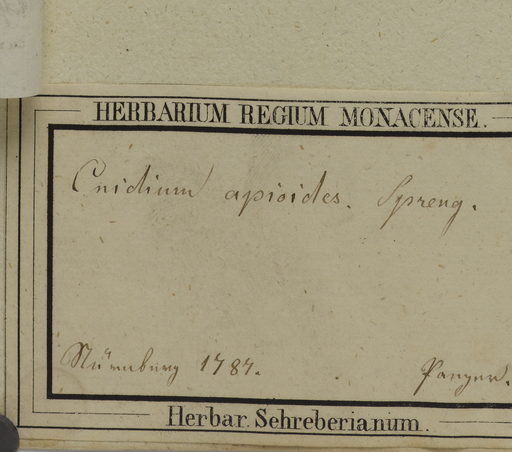 HERBARIUM REGIUM MONACENSE.
Cnidium apioides. Spreng.
Nürnberg 1787. Panzer.
Herbar. Schreberianum.